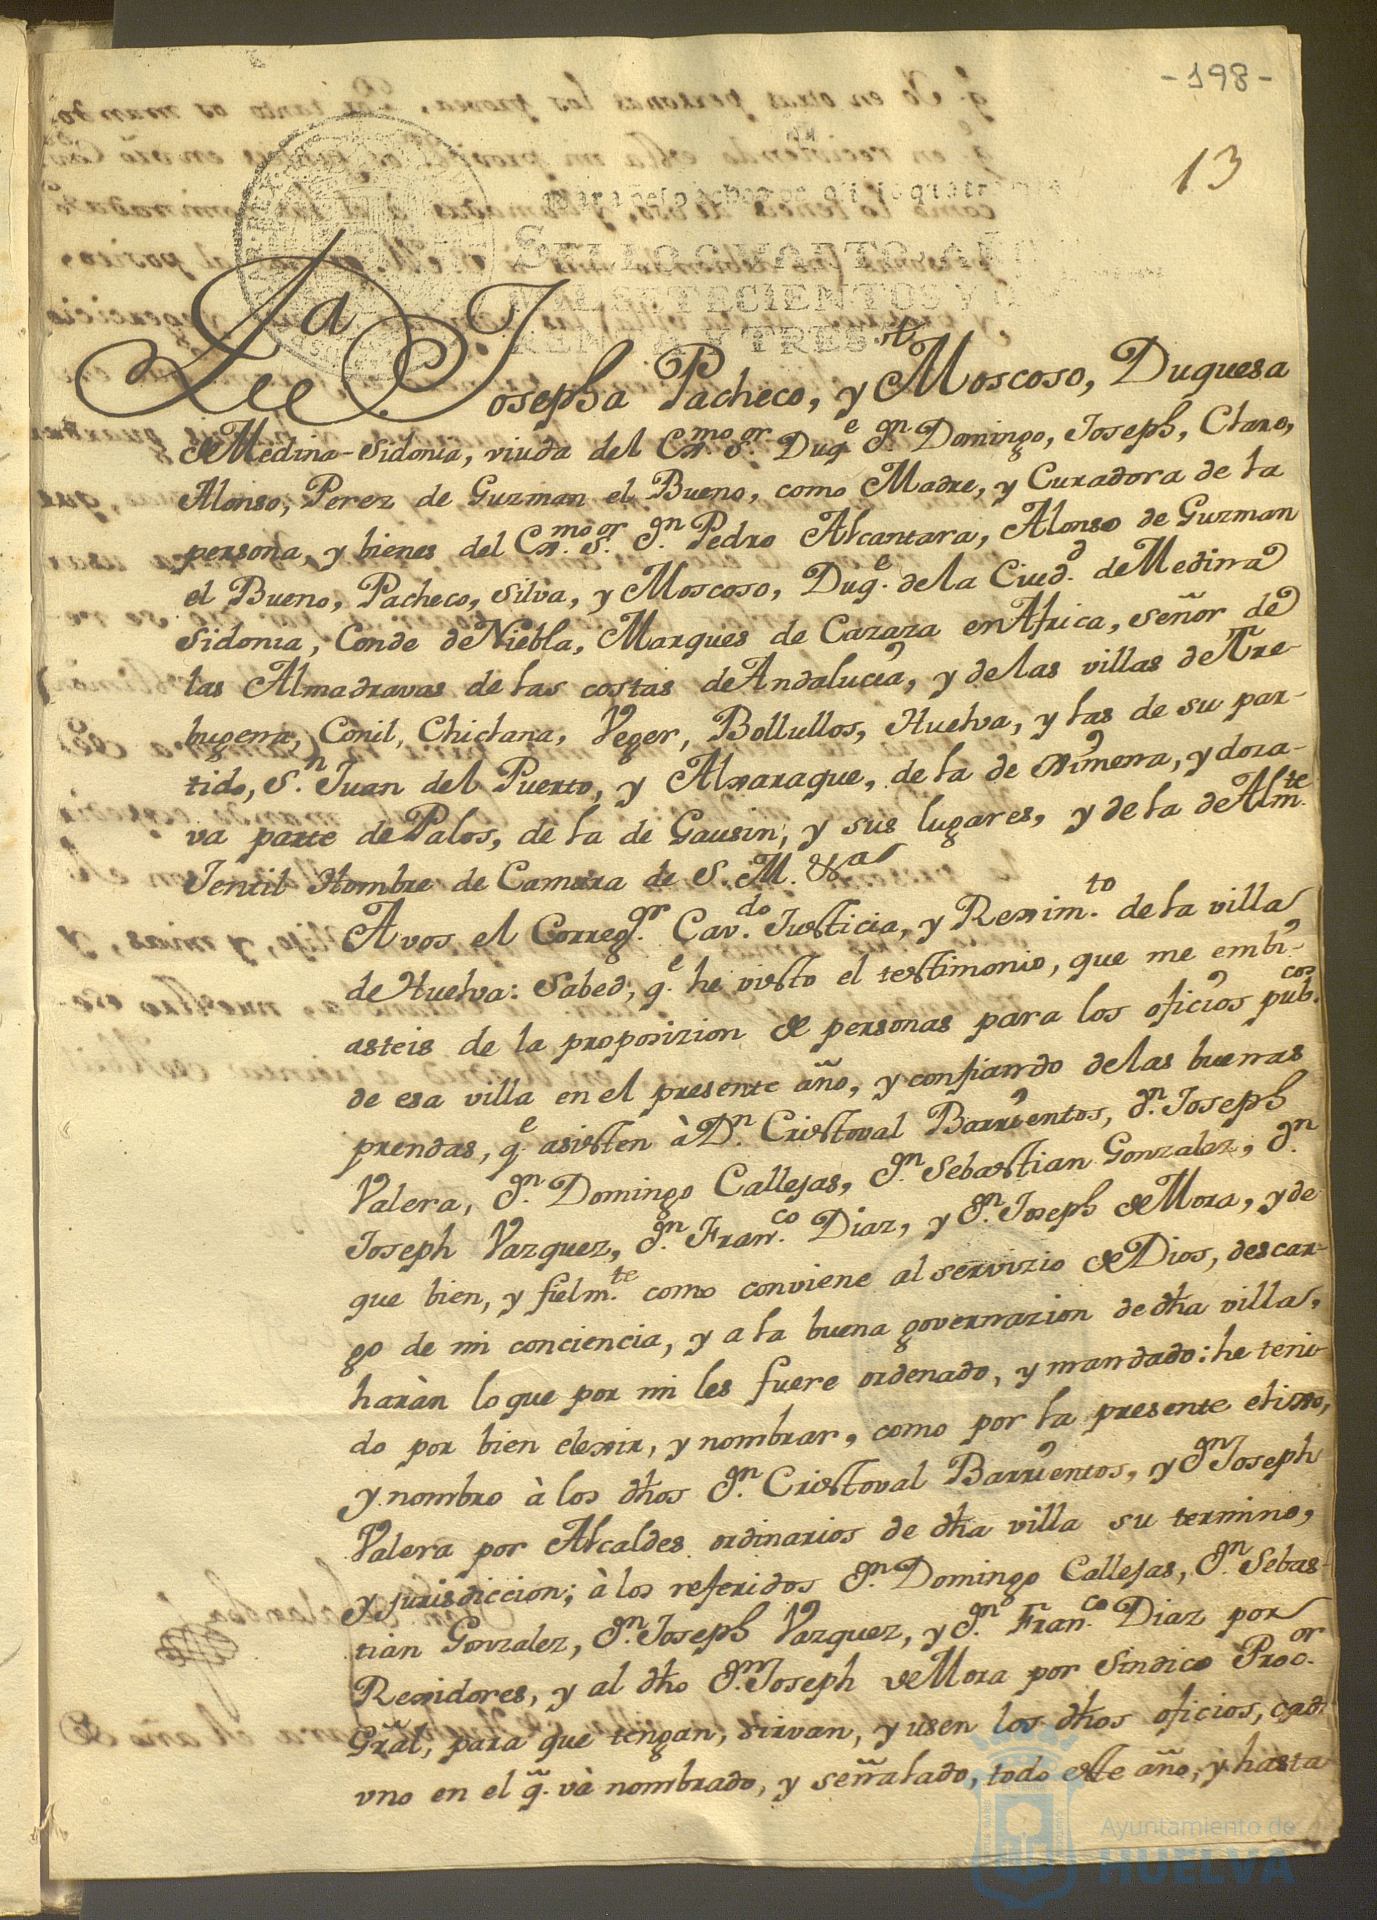 -198-
13
Para despachos de oficio quatro mrs
SELLO QUARTO, AÑO
MIL SETECIENTOS Y
RENTA Y TRES.
La
Josepha Pacheco, y Moscoso, Duquesa
de Medina-Sidonia, viuda del Ex.mo S.or Duq.e Dn. Domingo, Joseph, Claro,
Alonso, Perez de Guzman el Bueno, como Madre, y Curadora de la
persona, y bienes del Ex.mo S.or Dn. Pedro Alcantara, Alonso de Guzman
el Bueno, Pacheco, Silva, y Moscoso, Duq.e de la Ciud.d de Medina
Sidonia, Conde de Niebla, Marques de Cazaza en Africa, señor de
las Almadravas de las costas de Andalucia, y de las villas de Tre-
bugena, Conil, Chiclana, Veger, Bollullos, Huelva, y las de su par-
tido, S.n Juan del Puerto, y Alxaraque, de la de Ximena, y doza-
va parte de Palos, de la de Gausin, y sus lugares, y de la de Alm.te
Jentil Hombre de Camara de S. M. &a
A vos el Correg.or Cav.do Justicia, y Rexim.to de la villa
de Huelva: Sabed, q.e he visto el testimonio, que me embi-
asteis de la proposizion de personas para los oficios pub.cos
de esa villa en el presente año, y confiando de las buenas
prendas, q.e asisten à Dn. Cristoval Barrientos, dn. Joseph
Valera, Dn. Domingo Callejas, Dn. Sebastian Gonzalez, Dn.
Joseph Vazquez, Dn. Fran.co Diaz, y Dn. Joseph de Mora, y de
que bien, y fielm.te como conviene al servizio de Dios, descar-
go de mi conciencia, y a la buena governazion de dha villa,
haràn lo que por mi les fuere ordenado, y mandado: he teni-
do por bien elexir, y nombrar, como por la presente elixo,
y nombro à los dhos Dn. Cristoval Barrientos, y Dn. Joseph
Valera por Alcaldes ordinarios de dha villa su termino,
y jurisdiccion; à los referidos Dn. Domingo Callejas, Dn. Sebas-
tian Gonzalez, Dn. Joseph Vazquez, y Dn. Fran.co Diaz por
Rexidores, y al dho Dn. Joseph de Mora por Sindico Proc.or
Gral, para que tengan, sirvan, y usen los dhos oficios, cad.
vno en el q. và nombrado, y señalado, todo este año, y hasta
Ayuntamiento de
HUELVA